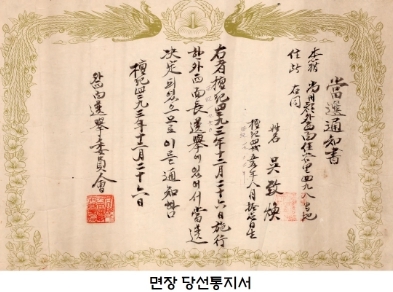 當選通知書
本籍 尚州郡外西面
住所 右同
姓名 吳致煥
檀紀四
右者檀紀四二九三年十二月二十六日施行
한外西面長選擧에있어서當選
決定되었으므로이를通知함
檀紀四二九三年十二月二十六日
外西面選擧委員會
면장 당선통지서